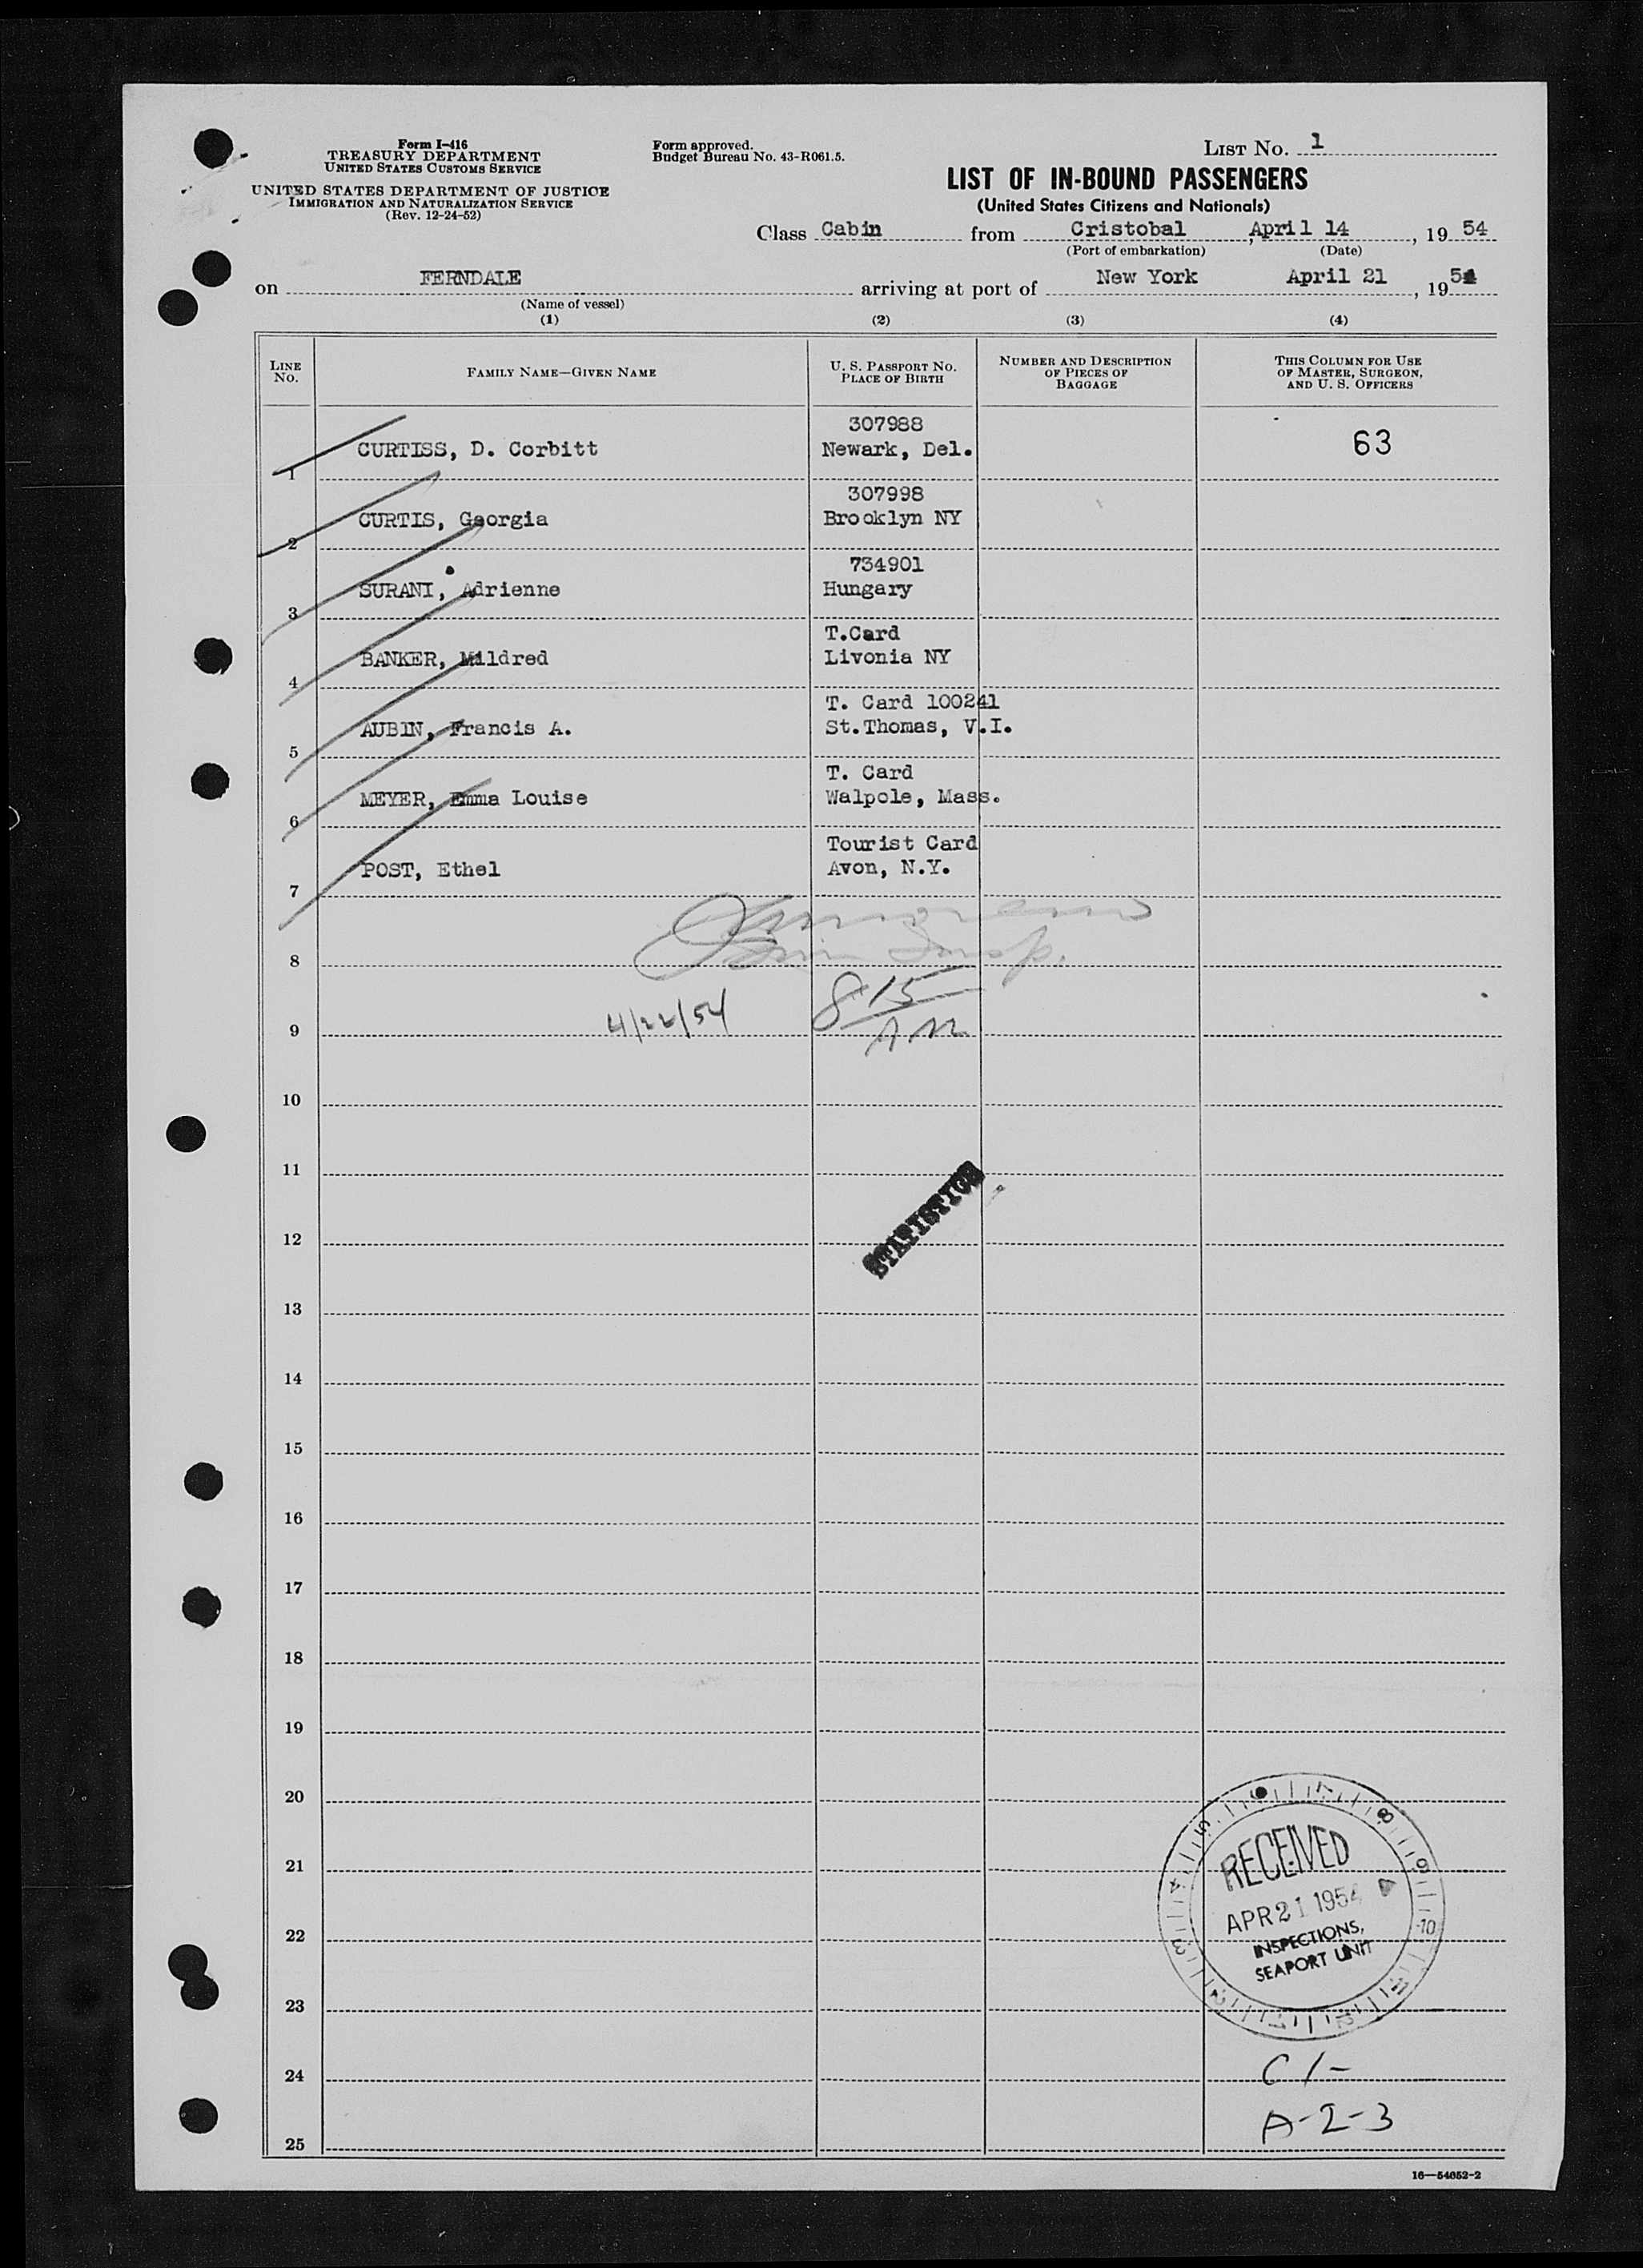 Form I-416
TREASURY DEPARTMENT
UNITED STATES CUSTOMS SERVICE
UNITED STATES DEPARTMENT OF JUSTICE
IMMIGRATION AND NATURALIZATION SERVICE
(Rev. 12-24-52)
Form approved.
Budget Bureau No. 43-R061.5.
LIST No. 1
LIST OF IN-BOUND PASSENGERS
(United States Citizens and Nationals)
Class Cabin from Cristobal, April 14, 19 54
(Port of embarkation) (Date)
on FERNDALE arriving at port of New York April 21, 1954
(Name of vessel)
(1) (2) (3) (4)
LINE No. FAMILY NAME—GIVEN NAME U. S. PASSPORT No. PLACE OF BIRTH NUMBER AND DESCRIPTION OF PIECES OF BAGGAGE THIS COLUMN FOR USE OF MASTER, SURGEON, AND U. S. OFFICERS
307988
CURTISS, D. Corbitt Newark, Del. 63
1
307998
CURTIS, Georgia Brooklyn NY
2
734901
SURANI, Adrienne Hungary
3
T.Card
BANKER, Mildred Livonia NY
4
T. Card 100241
AUBIN, Francis A. St.Thomas, V.I.
5
T. Card
MEYER, Emma Louise Walpole, Mass.
6
Tourist Card
POST, Ethel Avon, N.Y.
7
Insp.
8
4/22/54 8 15 AM
9
10
11
STATISTICS
12
13
14
15
16
17
18
19
20
RECEIVED
21
APR 21 1954
INSPECTIONS,
22
SEAPORT UNIT
23
C 1-
24
A-2-3
25
16—54052-2